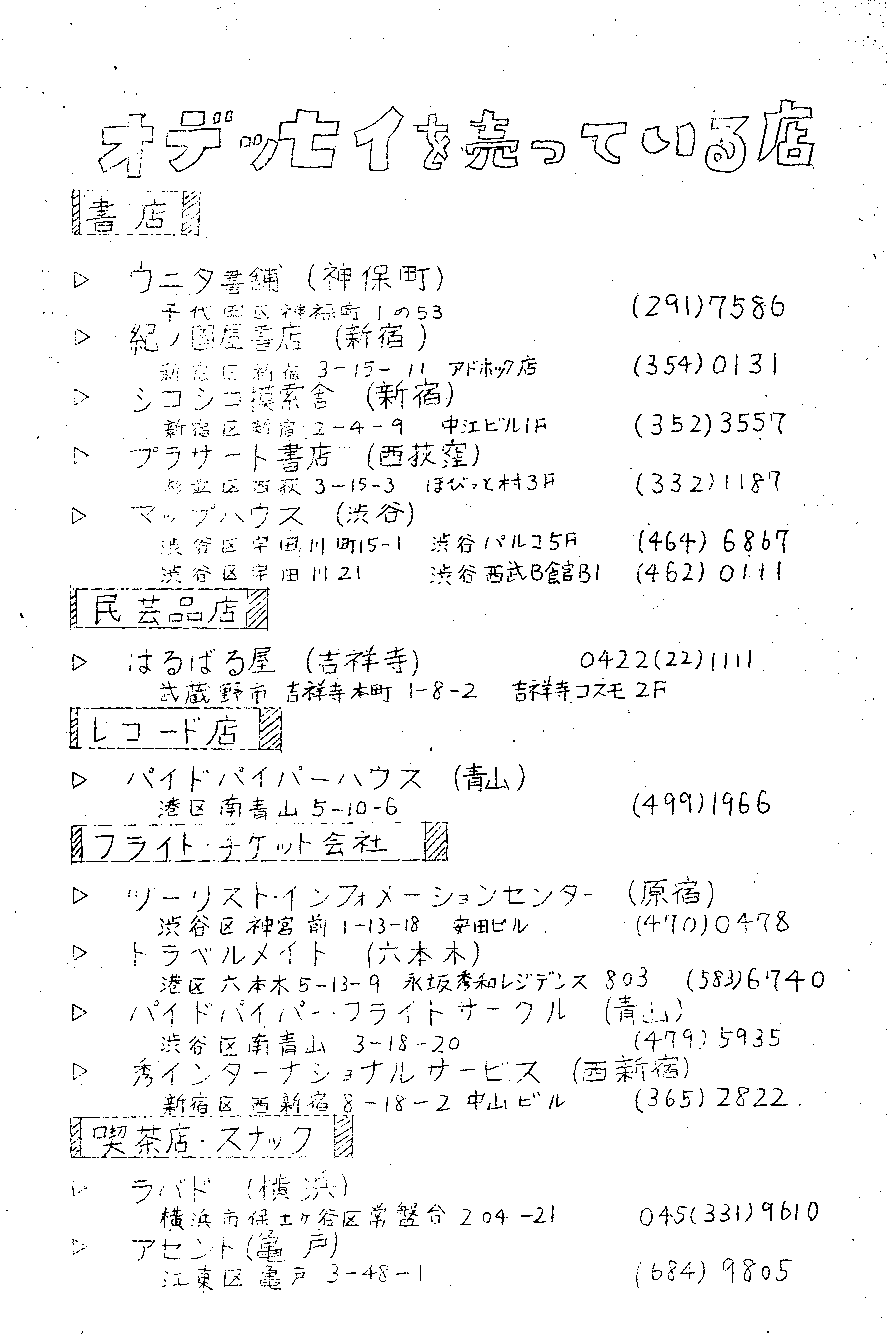 オデッセイを売っている店
書店
▷ ウニタ書舗 (神保町)
千代田区神保町1の53 (291)7586
▷ 紀ノ國屋書店 (新宿)
新宿区新宿 3-15-11 アドホック店 (354)0131
▷ シコシコ模索舎 (新宿)
新宿区新宿 2-4-9 中江ビル1F (352)3557
▷ プラサート書店 (西荻窪)
杉並区西荻 3-15-3 ほびっと村3F (332)1187
▷ マップハウス (渋谷)
渋谷区宇田川町15-1 渋谷パルコ5F (464)6867
渋谷区宇田川21 渋谷西武B館B1 (462)0111
民芸品店
▷ はるばる屋 (吉祥寺) 0422(22)1111
武蔵野市吉祥寺本町 1-8-2 吉祥寺コスモ2F
レコード店
▷ パイドパイパーハウス (青山)
港区南青山 5-10-6 (499)1966
フライト・チケット会社
▷ ツーリスト・インフォメーションセンター (原宿)
渋谷区神宮前 1-13-18 安田ビル (470)0478
▷ トラベルメイト (六本木)
港区六本木5-13-9 永坂秀和レジデンス 803 (583)6740
▷ パイドパイパー・フライトサークル (青山)
渋谷区南青山 3-18-20 (479)5935
▷ 秀インターナショナルサービス (西新宿)
新宿区西新宿8-18-2 中山ビル (365)2822
喫茶店・スナック
▷ ラバド (横浜)
横浜市保土ヶ谷区常盤台 204-21 045(331)9610
▷ アセント(亀戸)
江東区亀戸 3-48-1 (684)9805